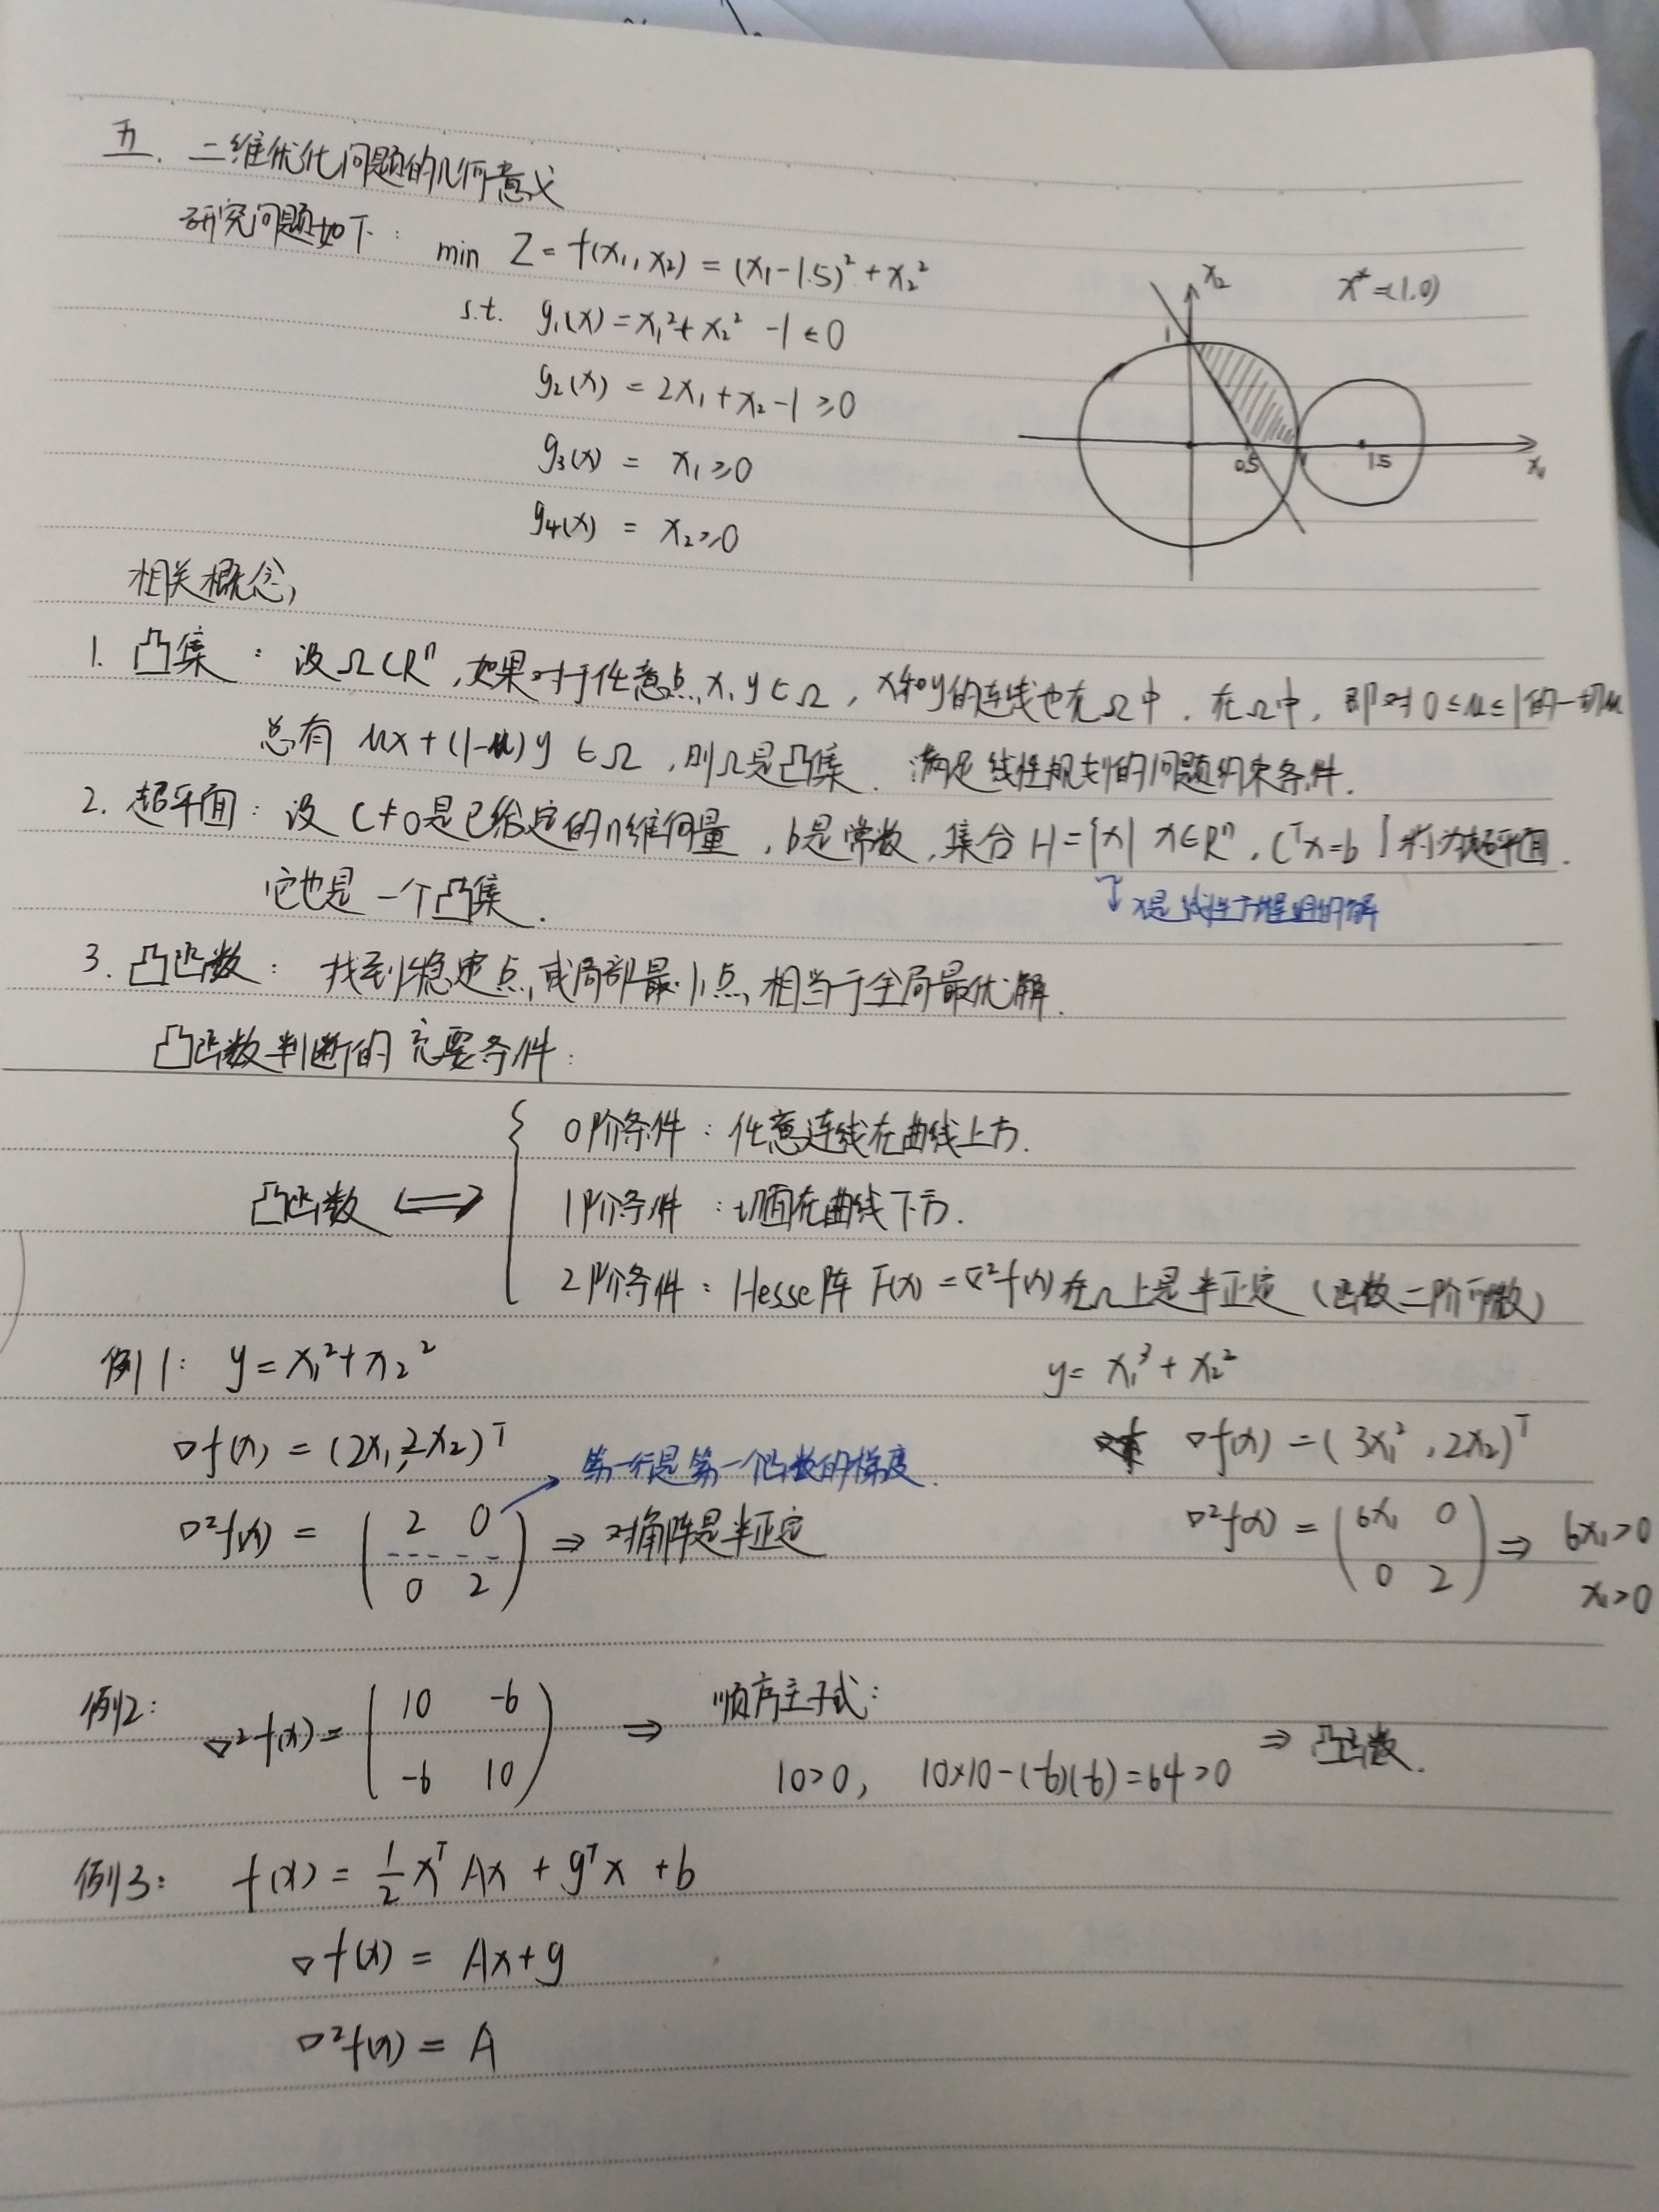 五. 二维优化问题的几何意义
研究问题如下: min Z = f(x₁, x₂) = (x₁-1.5)² + x₂²
s.t. g₁(x) = x₁² + x₂² -1 ≤ 0
g₂(x) = 2x₁ + x₂ -1 ≥ 0
g₃(x) = x₁ ≥ 0
g₄(x) = x₂ ≥ 0
x₂ x* = (1.0)
1
0.5 1 1.5 x₁
相关概念,
1. 凸集: 设Ω⊂Rⁿ, 如果对于任意点 x, y ∈ Ω, x和y的连线也在Ω中. 在Ω中, 即对 0≤u≤1的一切u
总有 ux + (1-u)y ∈ Ω, 则Ω是凸集. 满足线性规划的问题约束条件.
2. 超平面: 设 C≠0是已给定的n维向量, b是常数, 集合 H = {x| x∈Rⁿ, Cᵀx=b } 称为超平面.
它也是一个凸集. ↓ x是线性方程组的解
3. 凸函数: 找到稳定点, 或局部最小点, 相当于全局最优解.
凸函数判断的充要条件:
0阶条件: 任意连线在曲线上方.
凸函数 ⟺ 1阶条件: 切面在曲线下方.
2阶条件: Hesse阵 F(x) = ∇²f(x) 在Ω上是半正定 (函数二阶可微)
例1: y = x₁² + x₂² y = x₁³ + x₂²
∇f(x) = (2x₁, 2x₂)ᵀ 第一行是第一个函数的梯度. ∇f(x) = (3x₁², 2x₂)ᵀ
∇²f(x) = (2 0 ⇒ 对角阵是半正定 ∇²f(x) = (6x₁ 0 ⇒ 6x₁>0
0 2) 0 2) x₁>0
例2: ∇²f(x) = (10 -6 ⇒ 顺序主子式:
-6 10) 10>0, 10×10-(-6)(-6)=64>0 ⇒ 凸函数.
例3: f(x) = ½ xᵀAx + gᵀx + b
∇f(x) = Ax+g
∇²f(x) = A